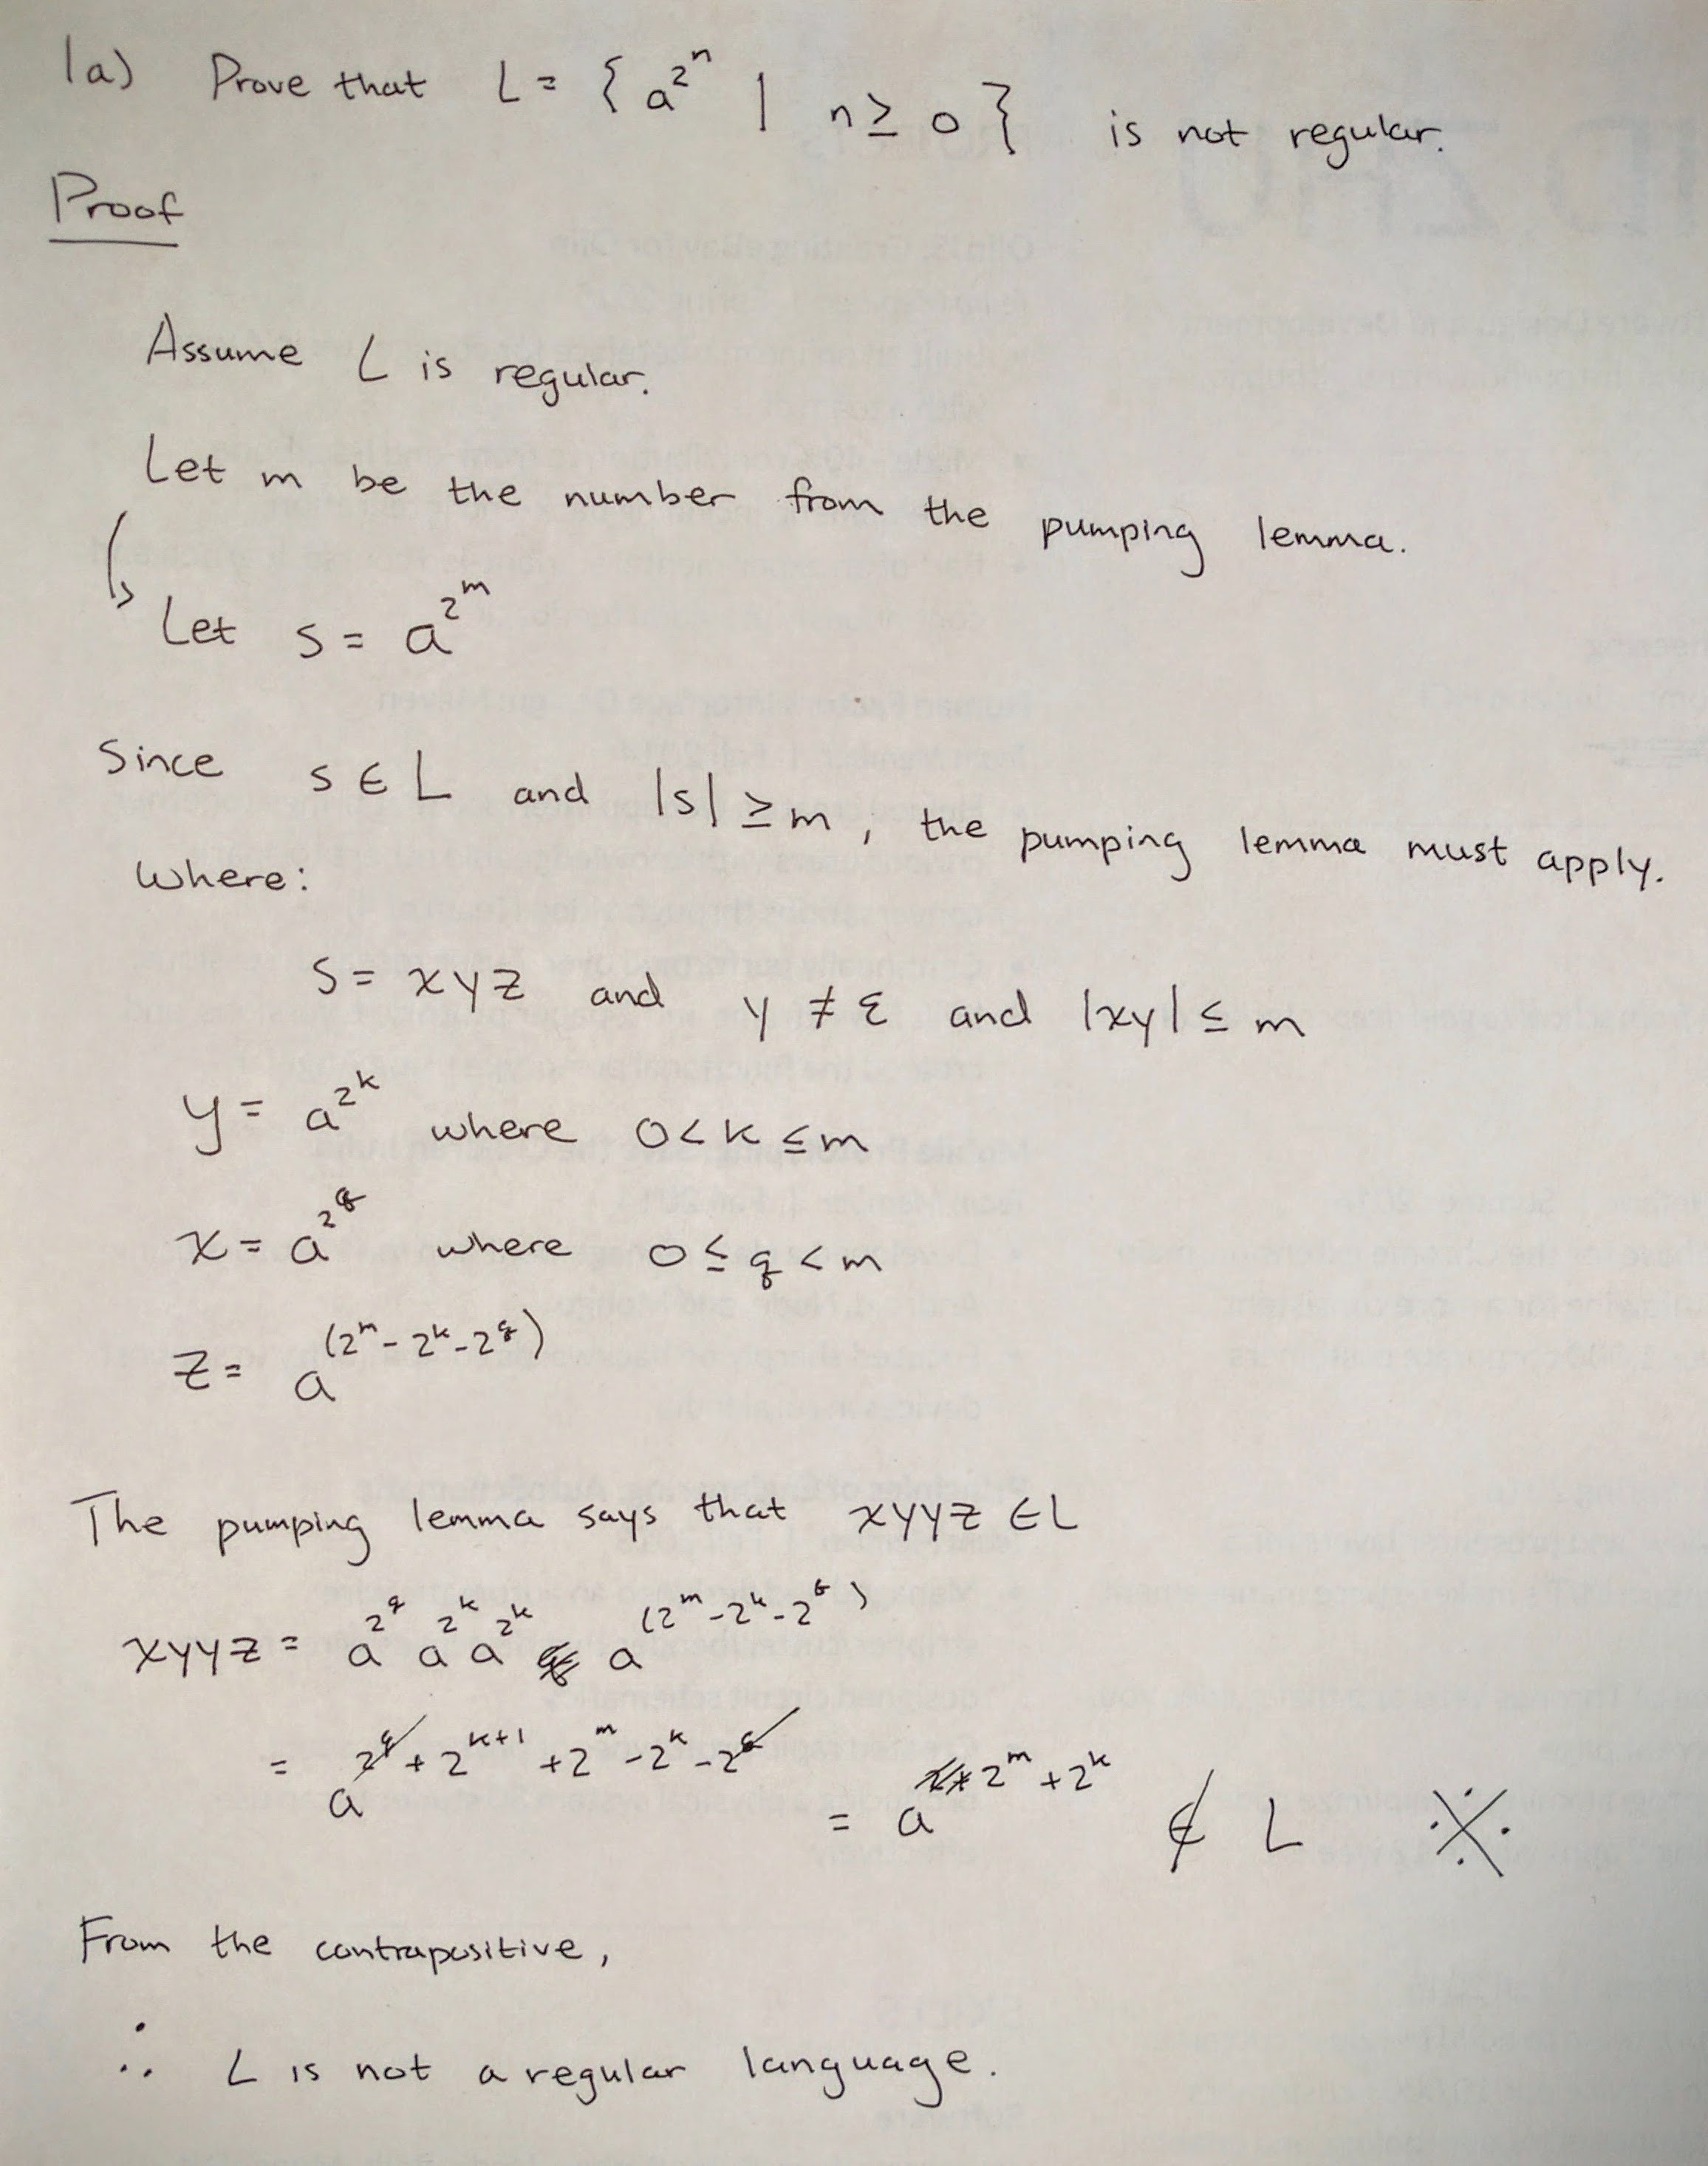 1a) Prove that L = { a^{2^n} | n ≥ 0 } is not regular.
Proof
Assume L is regular.
Let m be the number from the pumping lemma.
↳ Let s = a^{2^m}
Since s ∈ L and |s| ≥ m, the pumping lemma must apply.
Where:
s = xyz and y ≠ ε and |xy| ≤ m
y = a^{2^k} where 0 < k ≤ m
x = a^{2^q} where 0 ≤ q < m
z = a^{(2^m - 2^k - 2^q)}
The pumping lemma says that xyyz ∈ L
xyyz = a^{2^q} a^{2^k} a^{2^k} a^{(2^m - 2^k - 2^q)}
= a^{2^q + 2^{k+1} + 2^m - 2^k - 2^q} = a^{2^m + 2^k} ∉ L ※
From the contrapositive,
∴ L is not a regular language.